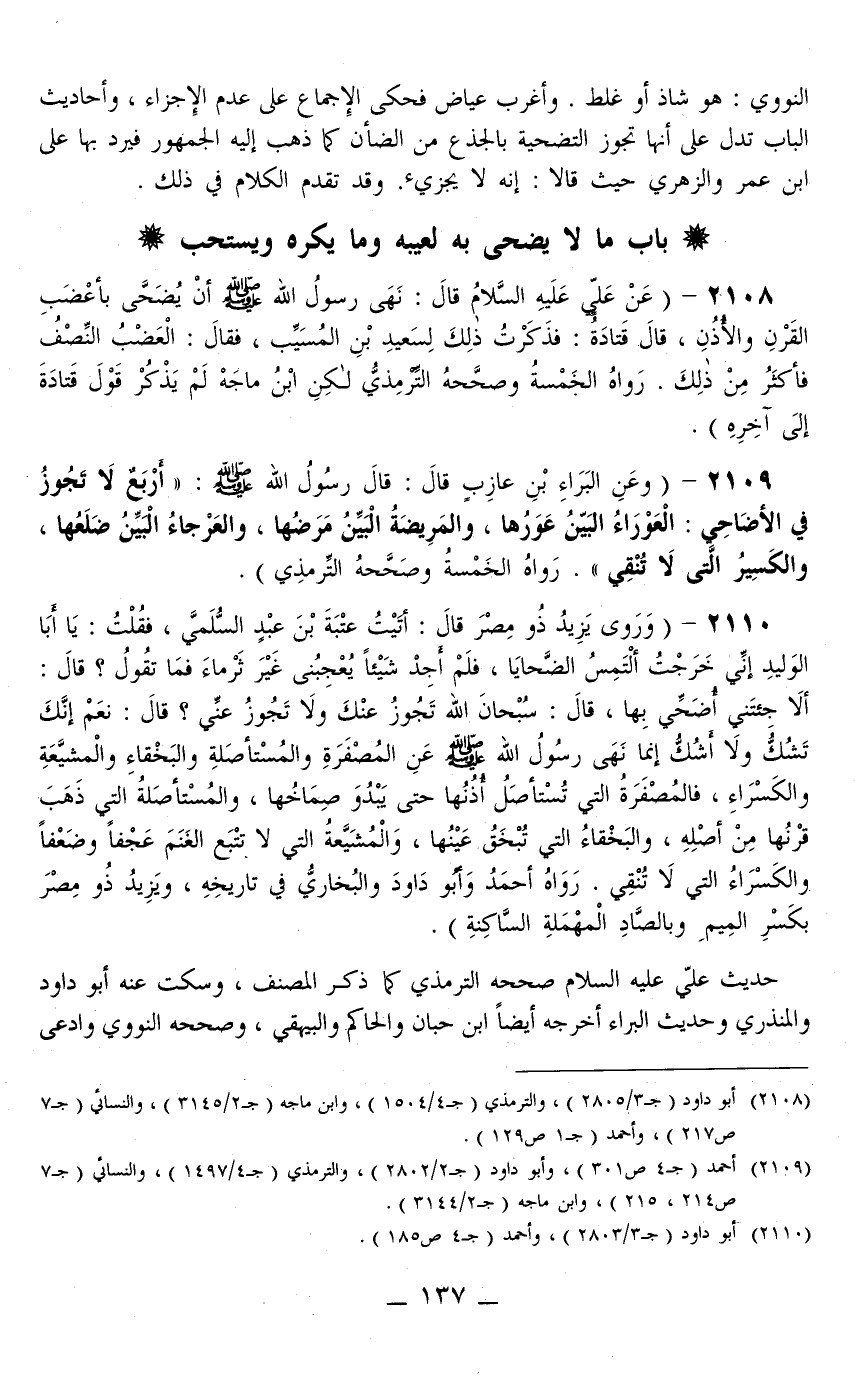 النووي : هو شاذ أو غلط . وأغرب عياض فحكى الإجماع على عدم الإجزاء ، وأحاديث
الباب تدل على أنها تجوز التضحية بالجذع من الضأن كما ذهب إليه الجمهور فيرد بها على
ابن عمر والزهري حيث قالا : إنه لا يجزيء. وقد تقدم الكلام في ذلك .
✵ باب ما لا يضحى به لعيبه وما يكره ويستحب ✵
٢١٠٨ – ( عَنْ عَلَيٍّ عَلَيهِ السَّلامُ قالَ : نَهَى رسولُ الله ﷺ أنْ يُضَحَّى بأعْضَبِ
القَرْنِ والأُذُنِ ، قالَ قَتادَةُ : فذكَرْتُ ذٰلِكَ لِسَعيدِ بْنِ المُسَيِّبِ ، فقالَ : الْعَضْبُ النِّصْفُ
فأكثَرُ مِنْ ذٰلِكَ . رَواهُ الخَمْسةُ وصحَّحهُ التِّرْمِذيُّ لـٰكِنِ ابْنُ ماجَهْ لَمْ يَذْكُرْ قَوْلَ قَتادَةَ
إلىَ آخِرِهِ ) .
٢١٠٩ – ( وعَنِ البَرَاءِ بْنِ عازِبٍ قالَ : قالَ رسُولُ الله ﷺ : « أَرْبَعٌ لَا تَجُوزُ
في الأضَاحِي : الْعَوْرَاءُ البَيّنُ عَوَرُها ، والمَرِيضَةُ الْبَيِّنُ مَرَضُها ، والعَرْجاءُ الْبَيِّنُ ضَلَعُها ،
والكَسِيرُ الَّتى لَا تُنْقِي » . رَواهُ الخَمْسةُ وصَحَّحهُ التِّرمذِي ) .
٢١١٠ – ( وَرَوى يَزِيدُ ذُو مِصْرَ قالَ : أتَيْتُ عتْبَةَ بْنَ عبْدٍ السُّلَميَّ ، فقُلْتُ : يَا أَبَا
الوَليدِ إنِّي خَرَجْتُ ألْتَمِسُ الضَّحايَا ، فلَمْ أَجِدْ شَيْئاً يُعْجِبُنى غَيْرَ ثَرْماءَ فمَا تقُولُ ؟ قالَ :
ألَا جِئتَني أُضَحِّي بِها ، قالَ : سُبْحانَ الله تَجُوزُ عنْكَ ولَا تَجُوزُ عنِّي ؟ قالَ : نعَمْ إنَّكَ
تَشكُّ ولَا أَشكُّ إنما نَهَى رسُولُ الله ﷺ عَنِ المُصْفَرَةِ والمُسْتأصَلةِ والبَخْقاءِ والْمشيَّعَةِ
والكَسْرَاءِ ، فالمُصْفَرَةُ التي تُسْتأصَلُ أُذُنُها حتى يَبْدُوَ صِمَاخُها ، والمُسْتأصَلةُ التي ذَهَبَ
قرْنُها مِنْ أصْلِهِ ، والبَخْقاءُ التي تُبْخَقُ عَيْنُها ، وَالْمُشيَّعةُ التي لا تتْبَع الغَنَمَ عَجْفاً وضَعْفاً
والكَسْرَاءُ التي لَا تُنْقِي . رَوَاهُ أحمَدُ وَأَبُو دَاودَ والبُخاريُّ في تاريخِهِ ، ويَزِيدُ ذُو مِصْرَ
بكَسْرِ المِيمِ وبالصَّادِ الْمهْمَلةِ السَّاكِنةِ ) .
حديث عليّ عليه السلام صححه الترمذي كما ذكر المصنف ، وسكت عنه أبو داود
والمنذري وحديث البراء أخرجه أيضاً ابن حبان والحاكم والبيهقي ، وصححه النووي وادعى
(٢١٠٨) أبو داود ( جـ٢٨٠٥/٣ ) ، والترمذي ( جـ١٥٠٤/٤ ) ، وابن ماجه ( جـ٣١٤٥/٢ ) ، والنسائي ( جـ٧
ص٢١٧ ) ، وأحمد ( جـ١ ص١٢٩ ) .
(٢١٠٩) أحمد ( جـ٤ ص٣٠١ ) ، وأبو داود ( جـ٢٨٠٢/٢ ) ، والترمذي ( جـ١٤٩٧/٤ ) ، والنسائي ( جـ٧
ص٢١٤ ، ٢١٥ ) ، وابن ماجه ( جـ٣١٤٤/٢ ) .
(٢١١٠) أبو داود ( جـ٢٨٠٣/٣ ) ، وأحمد ( جـ٤ ص١٨٥ ) .
_ ١٣٧ _